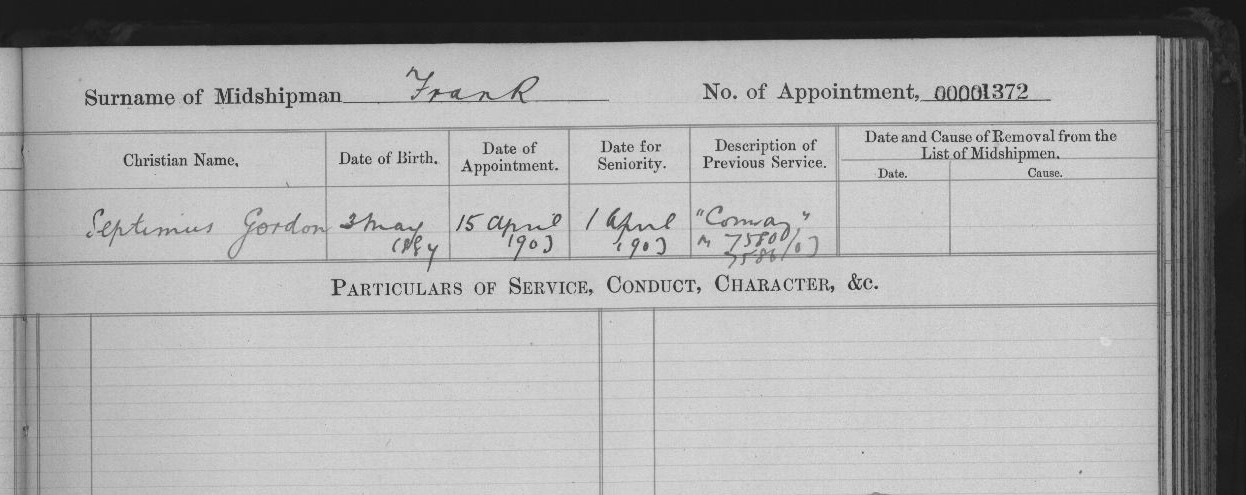 Surname of Midshipman Frank No. of Appointment, 00001372
Christian Name. Date of Birth. Date of Appointment. Date for Seniority. Description of Previous Service. Date and Cause of Removal from the List of Midshipmen.
Date. Cause.
Septimius Gordon 3 May 15 April 1 April "Conway"
1903 1903 M 75800/03
PARTICULARS OF SERVICE, CONDUCT, CHARACTER, &c.